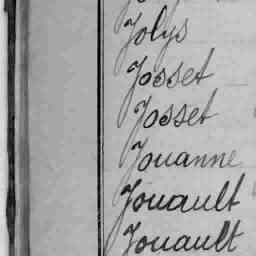 Jolys
Josset
Josset
Jouanne
Jouault
Jouault